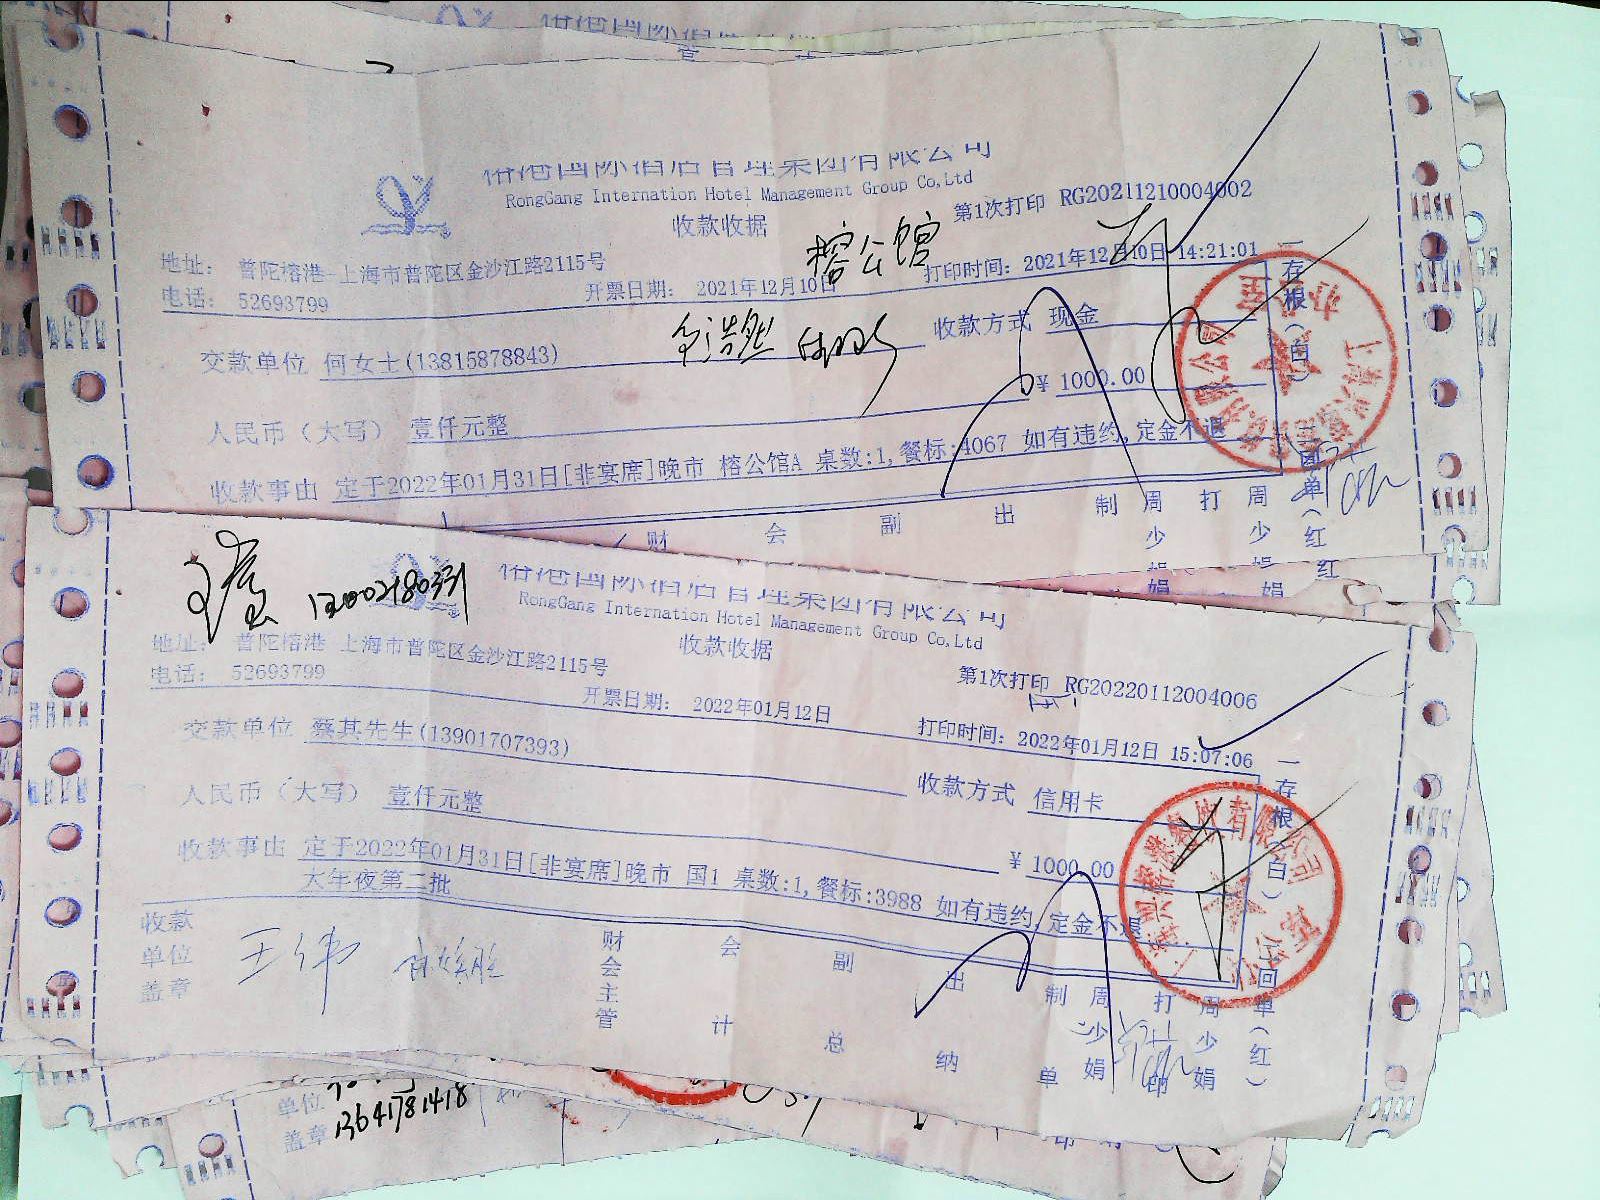 榕港国际酒店管理集团有限公司
RongGang Internation Hotel Management Group Co,Ltd
收款收据
第1次打印 RG20211210004002
榕公馆
地址： 普陀榕港-上海市普陀区金沙江路2115号
电话： 52693799
开票日期： 2021年12月10日
打印时间：2021年12月10日 14:21:01
交款单位 何女士(13815878843)
收款方式 现金
人民币（大写） 壹仟元整
￥ 1000.00
收款事由 定于2022年01月31日[非宴席]晚市 榕公馆A 桌数:1,餐标:4067 如有违约,定金不退
一存根（白）
回单（红
财 会 副 出 制 周少娟 打 周少娟
13002180331
榕港国际酒店管理集团有限公司
RongGang Internation Hotel Management Group Co,Ltd
收款收据
第1次打印 RG20220112004006
地址： 普陀榕港 上海市普陀区金沙江路2115号
电话： 52693799
开票日期： 2022年01月12日
打印时间：2022年01月12日 15:07:06
交款单位 蔡其先生(13901707393)
收款方式 信用卡
人民币（大写） 壹仟元整
￥ 1000.00
收款事由 定于2022年01月31日[非宴席]晚市 国1 桌数:1,餐标:3988 如有违约,定金不退
大年夜第二批
一存根（白）
回单（红）
收款单位盖章
王伟
财会主管 会计 副总 出纳 制单 周少娟 打印 周少娟
单位
盖章
13641781418